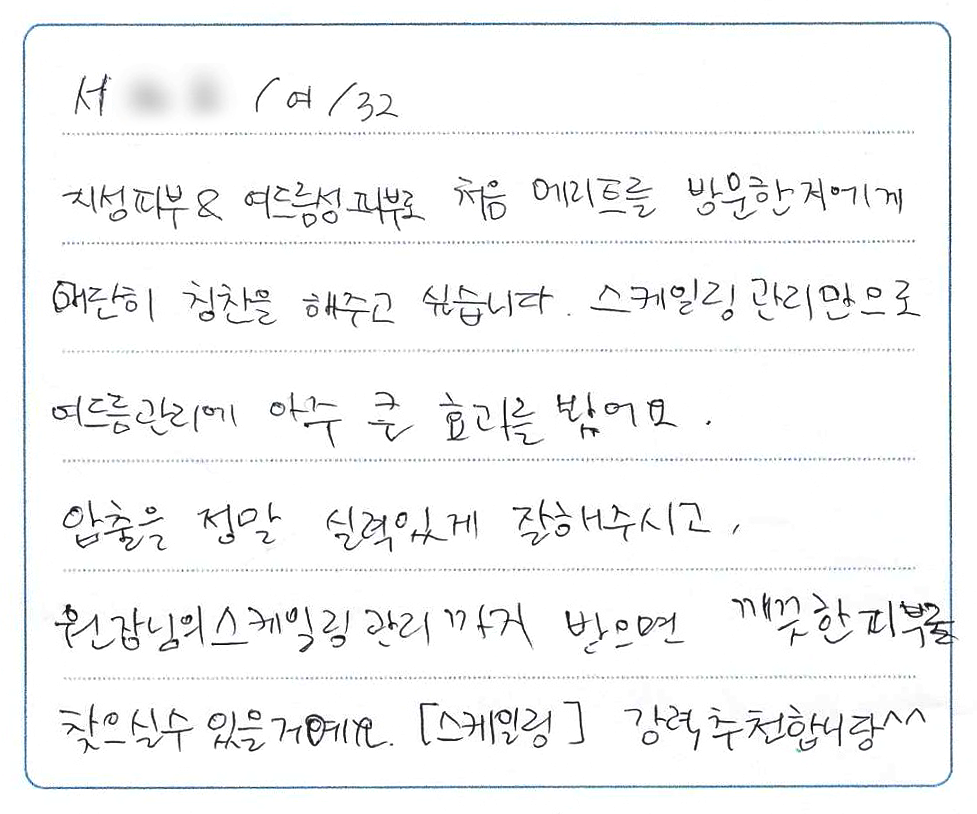 서 /여/32
지성피부& 여드름성피부로 처음 에리트를 방문한저에게
대단히 칭찬을 해주고 싶습니다. 스케일링관리만으로
여드름관리에 아주 큰 효과를 봤어요.
압출을 정말 실력있게 잘해주시고,
원장님의스케일링관리까지 받으면 깨끗한피부를
찾으실수있을거예요. [스케일링] 강력추천합니당^^